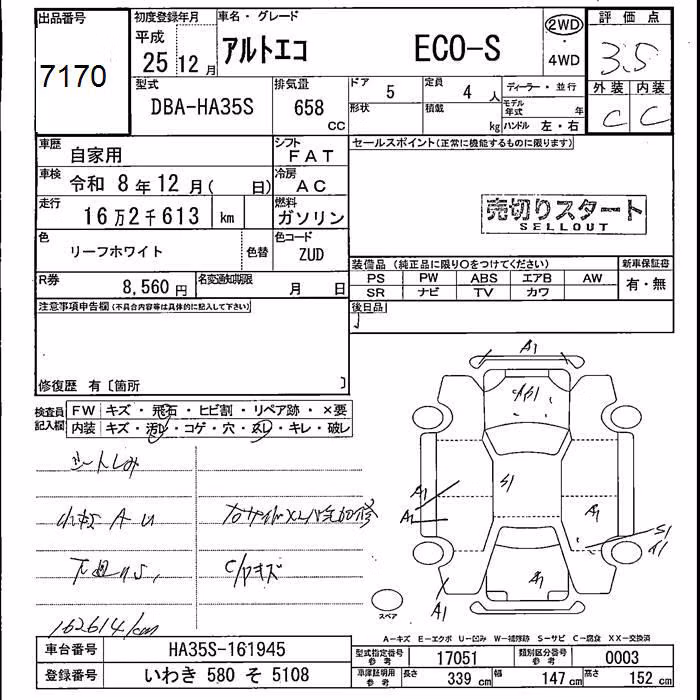 出品番号
7170
初度登録年月
平成
25年12月
車名・グレード
アルトエコ ECO-S
2WD
・
4WD
評価点
3.5
外装 内装
C C
型式
DBA-HA35S
排気量
658
CC
ドア 5
定員 4 人
形状
積載 kg
ディーラー・並行
モデル年式 年
ハンドル 左・右
車歴
自家用
シフト
FAT
車検
令和 8年12月( 日)
冷房
AC
走行
16万2千613 km
燃料
ガソリン
色
リーフホワイト
色替
色コード
ZUD
R券
8,560円
名変通知期限
月 日
セールスポイント(正常に機能するものに限ります)
売切りスタート
SELLOUT
装備品(純正品に限り○をつけてください)
PS PW ABS エアB AW
SR ナビ TV カワ
新車保証書
有・無
後日品
注意事項申告欄(不具合内容等は具体的に記入して下さい)
修復歴 有〔箇所 〕
検査員
記入欄
FW キズ・飛石・ヒビ割・リペア跡・×要
内装 キズ・汚れ・コゲ・穴・スレ・キレ・破レ
シートしみ
小キズ A U
下廻りS,
C/Pキズ
162614km
A1
A1
A1
A1
A1
S1
A1
A1
スペア
A-キズ E-エクボ U-凹み W-補修跡 S-サビ C-腐食 XX-交換済
車台番号 HA35S-161945
登録番号 いわき 580 そ 5108
型式指定番号
参考
17051
類別区分番号
参考
0003
車庫証明用
参考
長さ 339 cm 幅 147 cm 高さ 152 cm